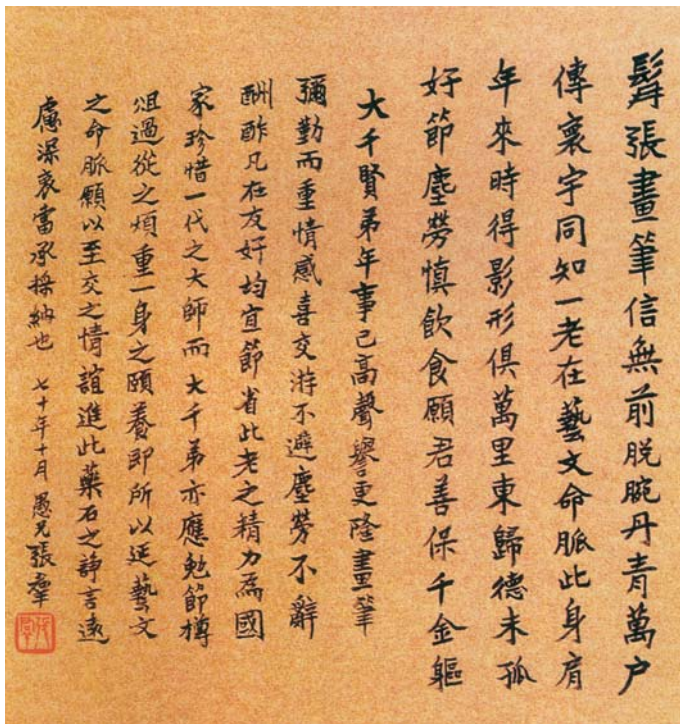 髯張畫筆信無前脱腕丹青萬户
傳寰宇同知一老在藝文命脈此身肩
年來時得影形俱萬里東歸德未孤
好節塵勞慎飲食願君善保千金軀
大千賢弟年事已高聲譽更隆畫筆
彌勤而重情感喜交游不避塵勞不辭
酬酢凡在友好均宜節省此老之精力為國
家珍惜一代之大師而大千弟亦應勉節樽
俎過從之煩重一身之頤養即所以延藝文
之命脈願以至交之情誼進此藥石之諍言遠
慮深衷當承採納也 七十年十月 愚兄張羣